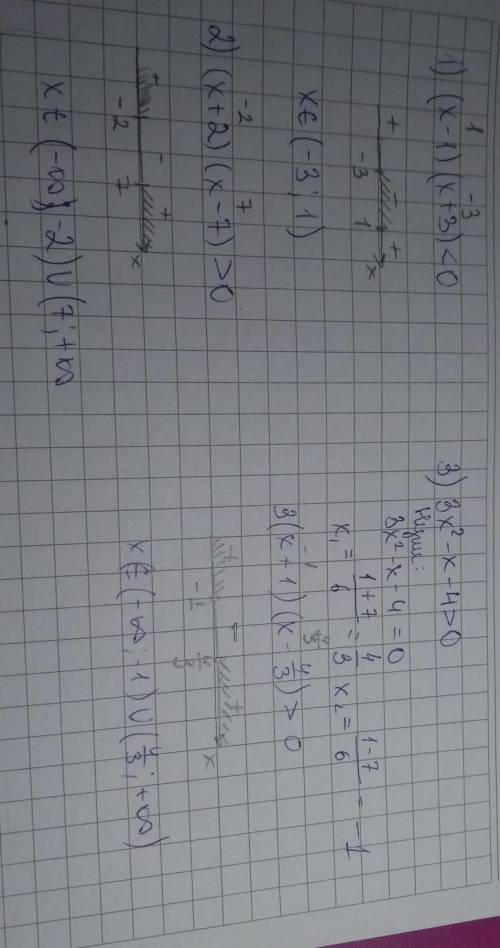 1) (x-1)(x+3)<0
1 -3
+ - +
-3 1 x
x∈(-3; 1)
2) (x+2)(x-7)>0
-2 7
+ - +
-2 7 x
x∈(-∞; -2)∪(7; +∞
3) 3x²-x-4>0
3x²-x-4=0
x₁ = (1+7)/6 = 4/3 x₂ = (1-7)/6 = -1
-1 4/3
3(x+1)(x-4/3)>0
+ - +
-1 4/3 x
x∈(-∞; -1)∪(4/3; +∞)